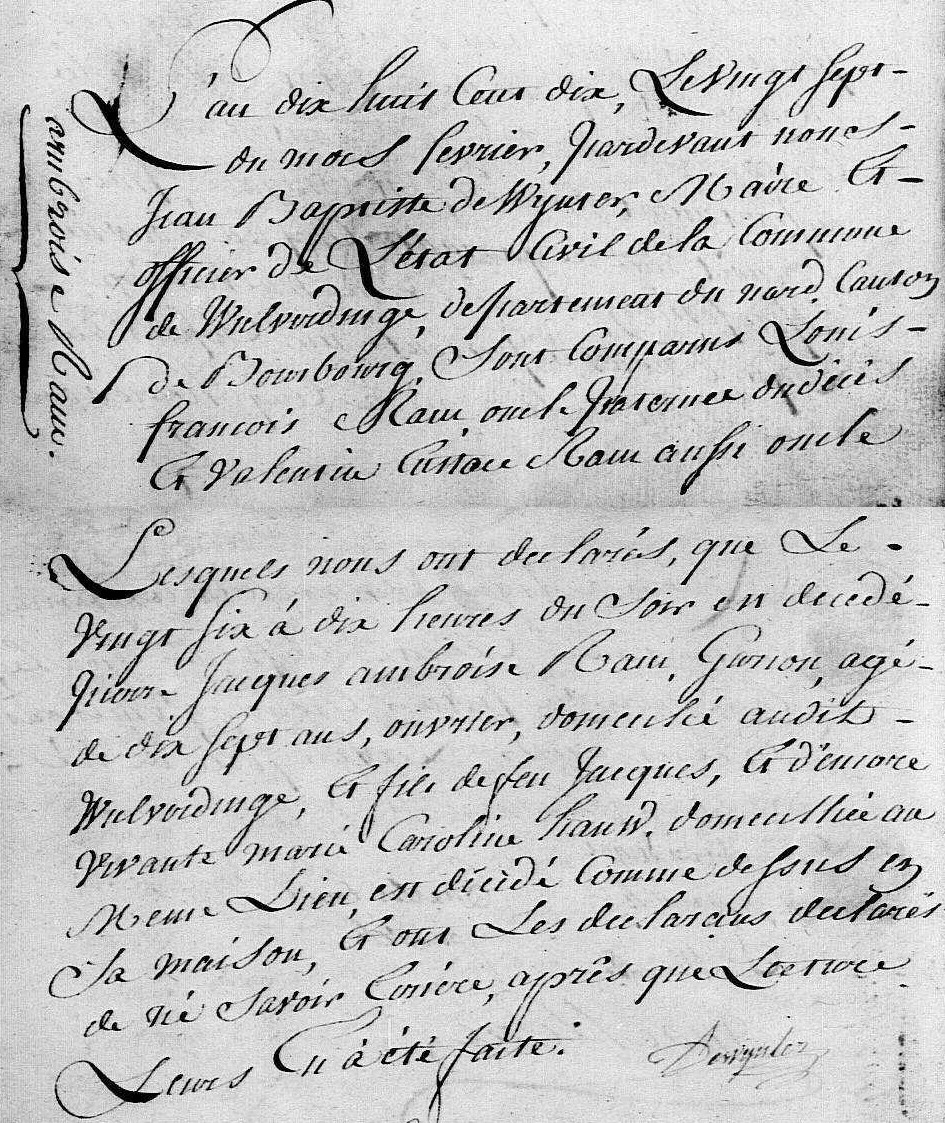 ambroise Ram.
L'an dix huit Cent dix, Le vingt sept -
du mois fevrier, pardevant nous -
Jean Baptiste deWynter, Maire Et -
officier de L'état Civil de la Commune
de Wulverdinge, departement du nord, Canton
de Bourbourg, Sont Comparus Louis -
francois Ram, oncle paternee du décés
Et Valentin Eustace Ram aussi oncle
Lesquels nous ont declarés, que Le -
vingt six à dix heures du Soir est decedé -
pierre Jacques ambroise Ram, Garson, agé -
de dix sept ans, ouvrier, domicilié audit -
Wulverdinge, Et fils de feu Jacques, Et d'encore
vivante marie Caroline hauw, domicilliée au
Meme Lieu, est décédé Comme dessus en
Sa maison, Et ont Les declarans declarés
de né Savoir Ecrire, après que Lecture
Leurs En à été faite.
Dewynter